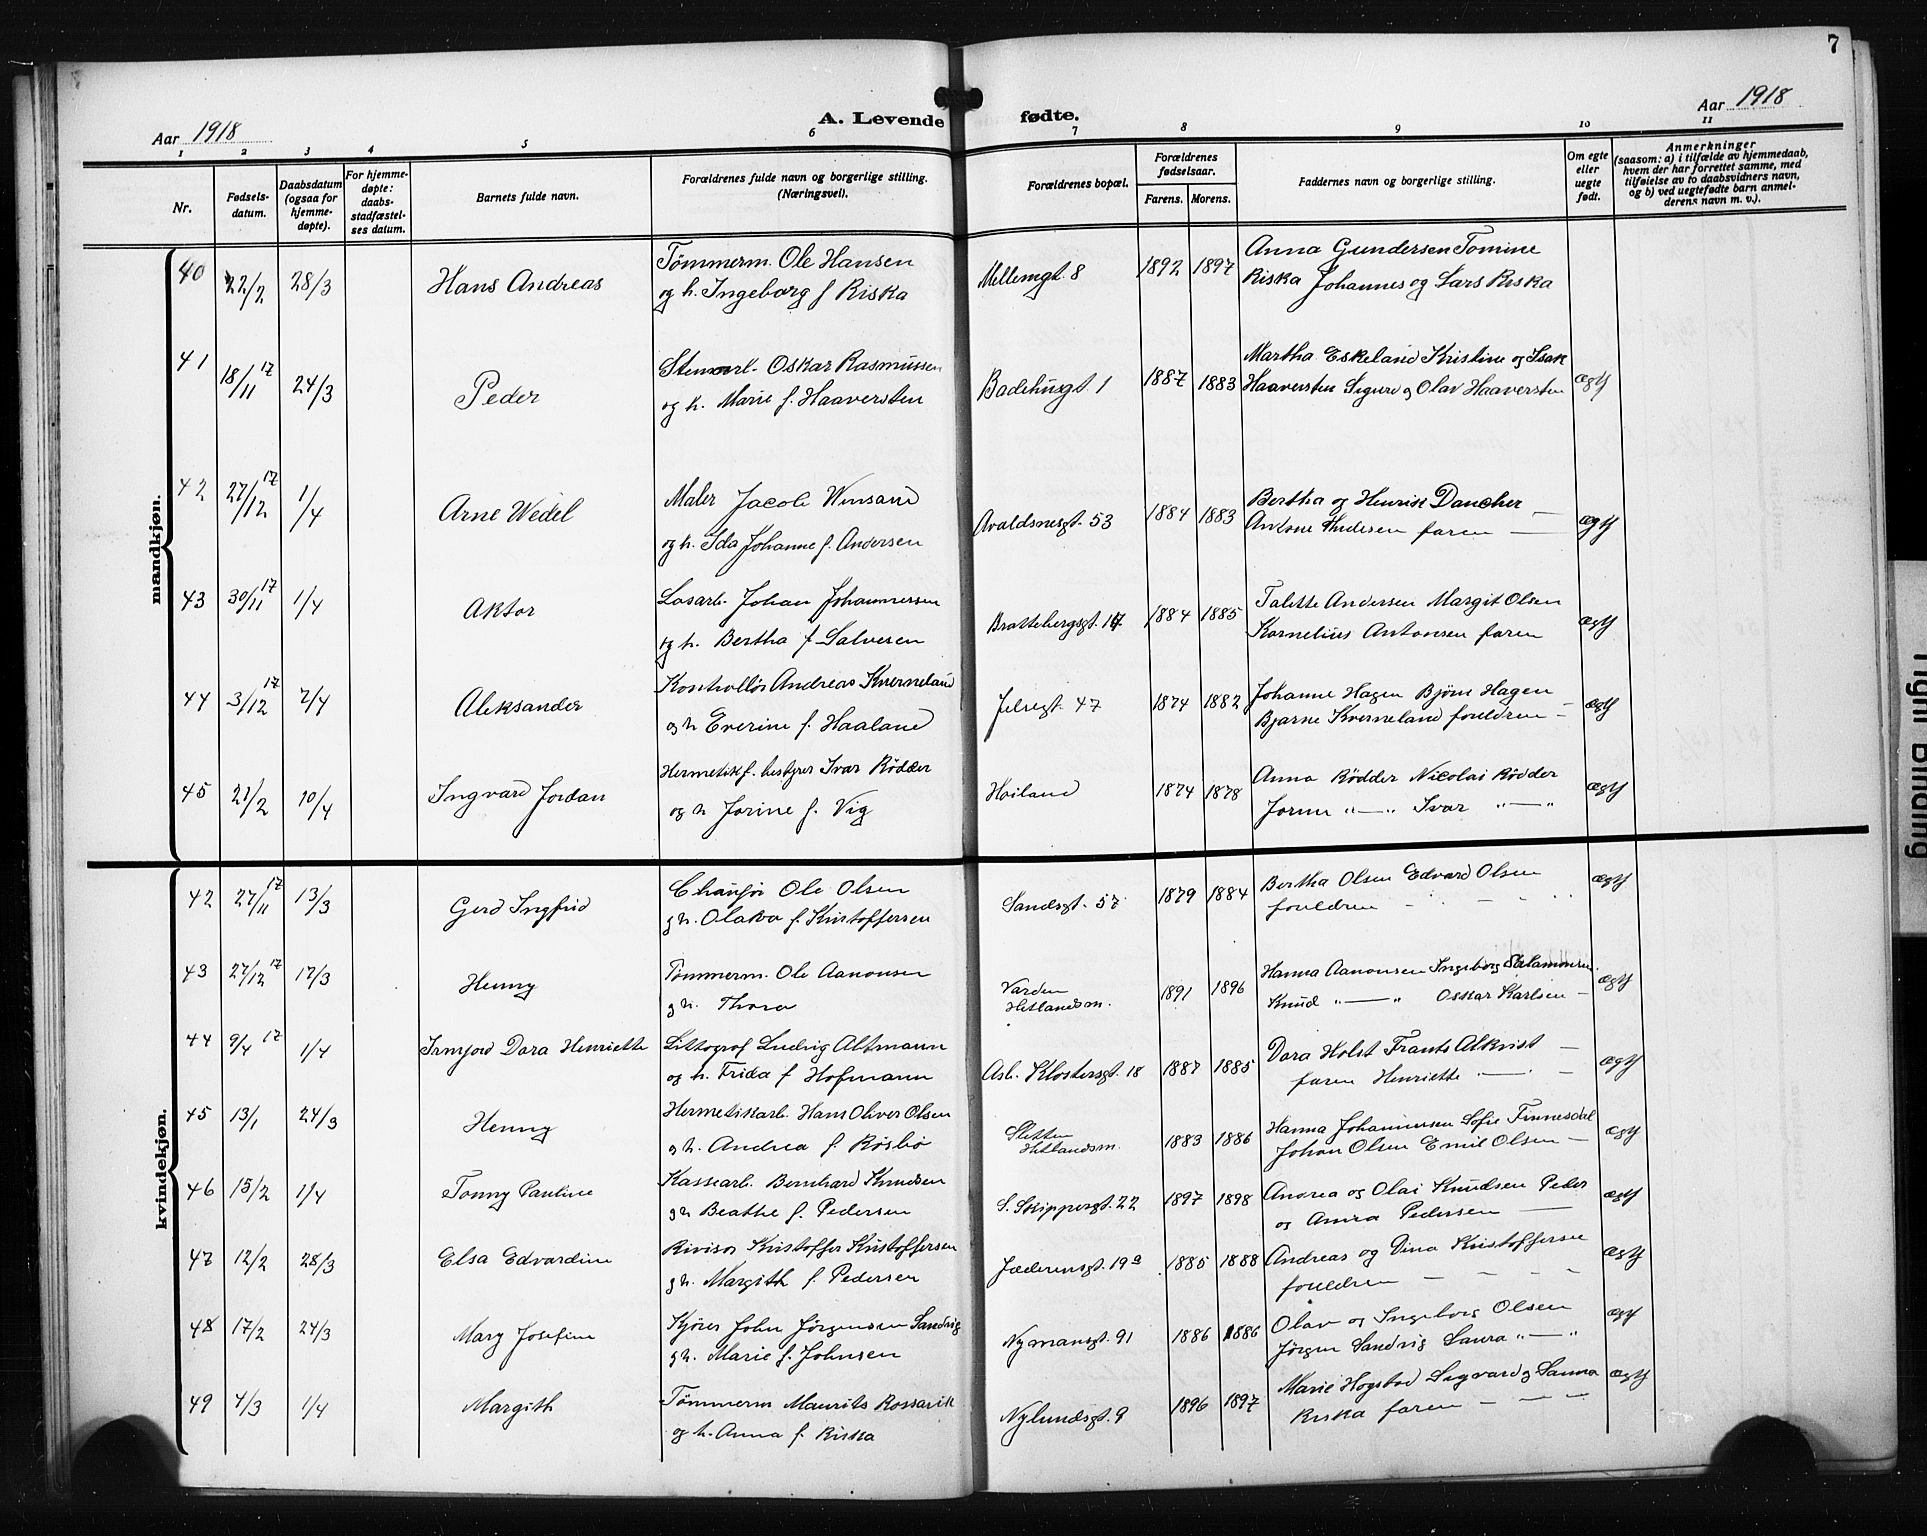 7
Aar 1918
A. Levende fødte.
Aar 1918
1 2 3 4 5 6 7 8 9 10 11
Nr.
Fødsels-
datum.
Daabsdatum
(ogsaa for
hjemme-
døpte).
For hjemme-
døpte:
daabs-
stadfæstel-
ses datum.
Barnets fulde navn.
Forældrenes fulde navn og borgerlige stilling.
(Næringsvei).
Forældrenes bopæl.
Forældrenes
fødselsaar.
Farens. Morens.
Faddernes navn og borgerlige stilling.
Om egte
eller
uegte
født.
Anmerkninger
(saasom: a) i tilfælde av hjemmedaab,
hvem der har forrettet samme, med
tilføielse av to daabsvidners navn,
og b) ved uegtefødte barn anmel-
derens navn m. v.).
mandkjøn.
40 22/2 28/3 Hans Andreas Tömmerm. Ole Hansen Mellemgt 8 1892 1897 Anna Gundersen Tomine
og h. Ingeborg f Riska Riska Johannes og Lars Riska
41 18/11 17 24/3 Peder Stenarb. Oskar Rasmussen Badehusgt 1 1887 1883 Martha Eskeland Kristine og Isak ægtf
og h. Marie f. Haaversten Haaversten Sigurd og Olav Haaversten
42 27/12 17 1/4 Arne Wedel Maler Jacob Avaldsnesgt. 53 1884 1883 Bertha og Henrik Dancher ægtf
og h. Ida Johanne f. Andersen Andersen faren —
43 30/11 17 1/4 Aktor Losarb. Johan Johannersen Brattebergsgt. 17 1884 1885 Talette Andersen Margit Olsen ægtf
og h. Bertha f Salvesen Kornelius Antonsen faren
44 3/12 17 2/4 Aleksander Kontrollör Andreas Kverneland Jelsegt 47 1874 1882 Johanne Hagen Björn Hagen ægtf
og h Everine f. Haaland Bjarne Kverneland foreldren —
45 21/2 10/4 Ingvard Jordan Hermetikf. bestyrer Ivar Rödder Hoiland 1874 1878 Anna Rödder Nicolai Rödder ægtf
og h Jorine f. Vig Jorine „—„ Ivar „—„
kvindekjøn.
42 27/11 17 13/3 Gerd Ingfrid Chauför Ole Olsen Sandsgt. 57 1879 1884 Bertha Olsen Edvard Olsen ægtf
g h. Olava f. Kristoffersen foreldren - - - -
43 27/12 17 17/3 Henny Tömmerm. Ole Aanonsen Varden 1891 1896 Hanna Aanonsen Ingeborg Salamonsen ægtf
g h. Thora Hetlandsm. Knud „—„ Oskar Karlsen —
44 9/4 17 1/4 Irmjord Dora Henriette Littograf Ludvig Altmann Asb. Klostersgt. 18 1887 1885 Dora Holst Frants Alkvist — ægtf
og h. Frida f Hofmann faren Henriette — -
45 13/1 24/3 Henny Hermetikarb. Hans Oliver Olsen Sletten 1883 1886 Hanna Johannersen Sofie Finnesdal ægtf
g h. Andrea f. Rösbö Hetlandsm. Johan Olsen Emil Olsen —
46 15/2 1/4 Tonny Pauline Kassearb. Bernhard Knudsen S. Skippergt. 22 1897 1898 Andrea og Olai Knudsen Peder ægtf
g h Beathe f. Pedersen og Anna Pedersen —
47 12/2 28/3 Elsa Edvardine Rivisor Kristoffer Kristoffersen Jæderensgt. 19a 1885 1888 Andreas og Dina Kristoffersen ægtf
g h. Margith f. Pedersen foreldren — - - -
48 17/2 24/3 Mary Josefine Kjörer John Jörgensen Sandvig Nymansgt. 91 1886 1886 Olav og Ingeborg Olsen ægtf
g h. Marie f. Johnsen Jörgen Sandvig Laura „—„
49 4/3 1/4 Margith Tömmerm Maurits Rossavik Nylundsgt. 9 1896 1897 Marie Hogstad Sigvard og Sanna ægtf
og h. Anna f. Riska Riska faren — - -